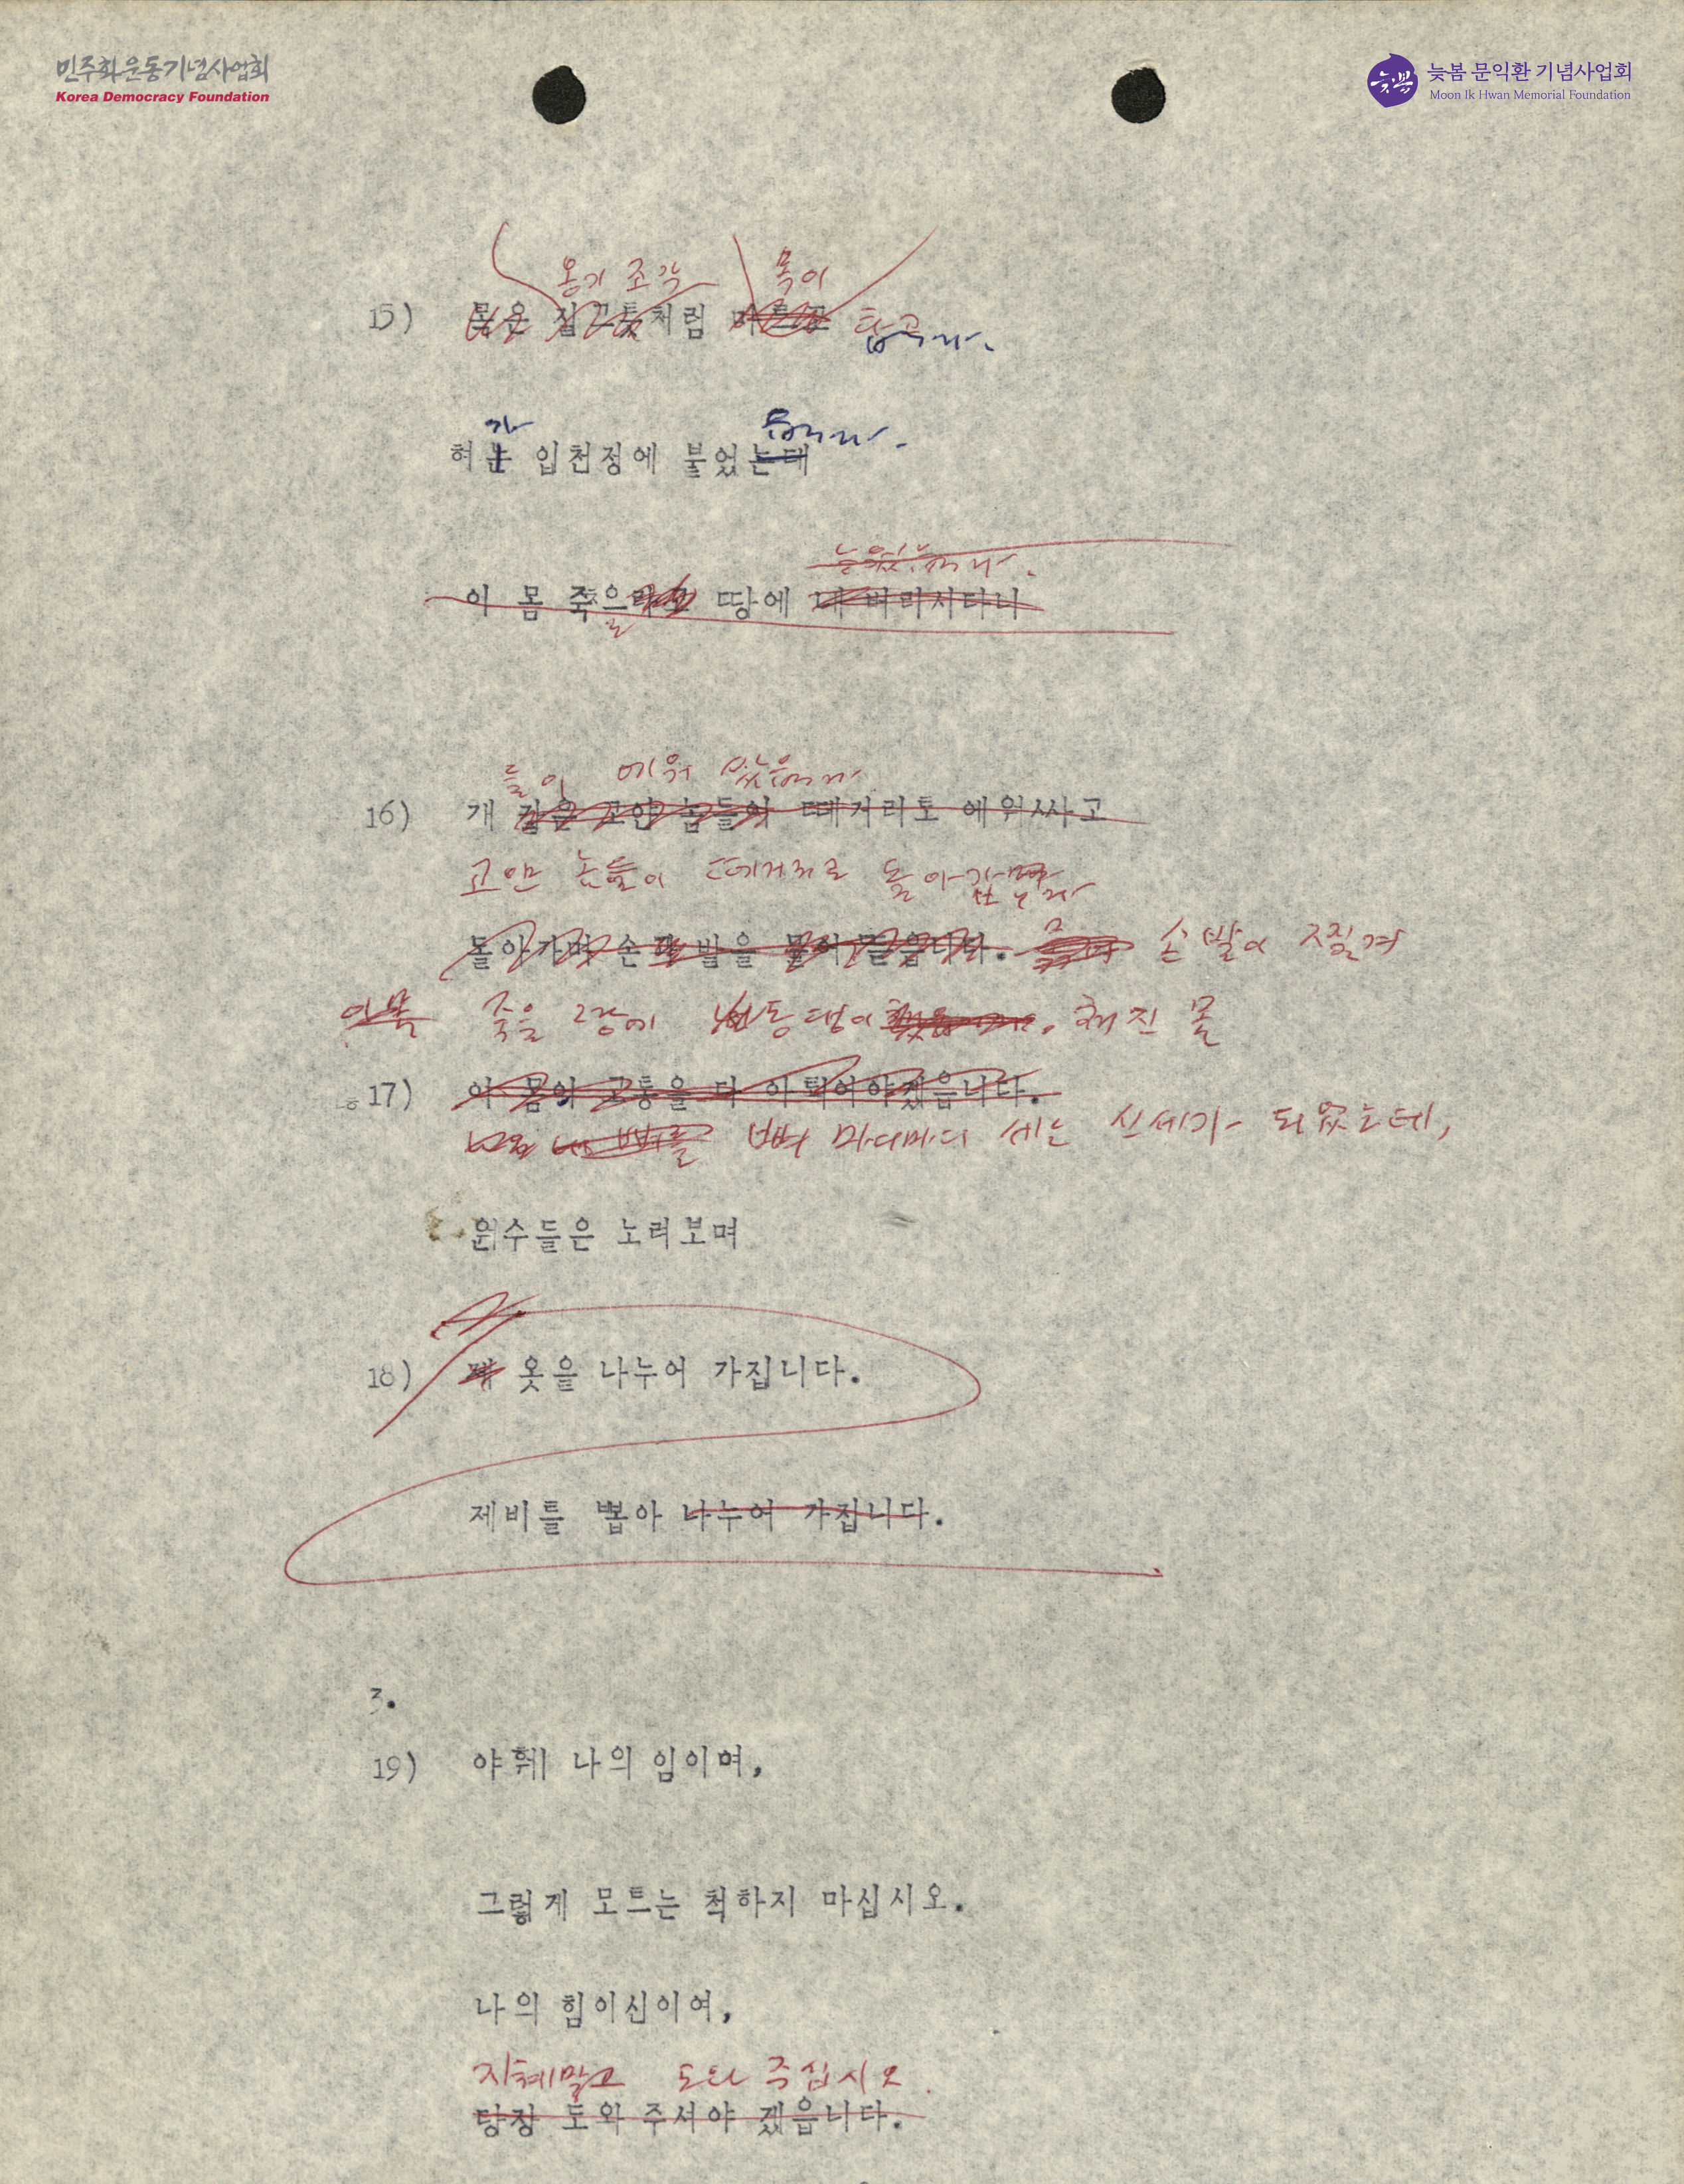 민주화운동기념사업회
Korea Democracy Foundation
늦봄
늦봄 문익환 기념사업회
Moon Ik Hwan Memorial Foundation
옹기 조각 목이
15) 목은 질그릇처럼 마르고 탑니다.
가 읍니다.
혀는 입천정에 붙었는데
누웠읍니다.
이 몸 죽으라고 땅에 내 버리시다니
들이 에워 쌌읍니다
16) 개 같은 고얀 놈들이 떼거리로 에워싸고
고얀 놈들이 떼거리로 돌아갑니다
돌아가며 손과 발을 물어 뜯읍니다. 손발이 찔려
죽을 몸뚱이 해진 몸
17) 이 몸의 고통을 더 아퍼야겠읍니다.
뼈 마디마디 세는 신세가 되었는데,
원수들은 노려보며
18) 제 옷을 나누어 가집니다.
제비를 뽑아 나누어 가집니다.
3.
19) 야훼 나의 임이여,
그렇게 모르는 척하지 마십시오.
나의 힘이신이여,
지체말고 도와 주십시오.
당장 도와 주셔야 겠읍니다.